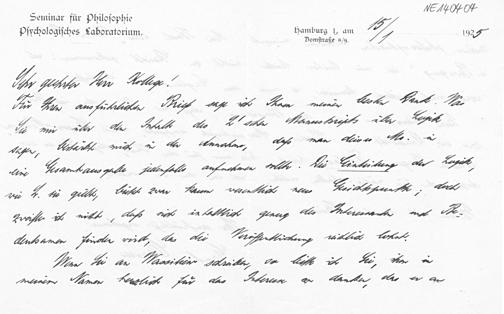 NE140404
Seminar für Philosophie
Psychologisches Laboratorium.
Hamburg 1, am 15/1 1925
Domstraße 8/9.
Sehr geehrter Herr Kollege!
Für Ihren ausführlichen Brief sage ich Ihnen meinen besten Dank. Was
Sie mir über den Inhalt des L'schen Manuskripts über Logik
sagen, bestärkt mich in der Annahme, dass man dieses Ms. in
eine Gesamtausgabe jedenfalls aufnehmen sollte. Die Einleitung der Logik,
die L. sie giebt, bietet zwar kaum wesentlich neue Gesichtspunkte; doch
zweifle ich nicht, dass sich inhaltlich genug des Interessanten und Be-
deutsamen finden wird, das die Veröffentlichung reichlich lohnt.
Wenn Sie an schreiben, so bitte ich Sie, ihm in
meinem Namen herzlich für das Interesse zu danken, das er an